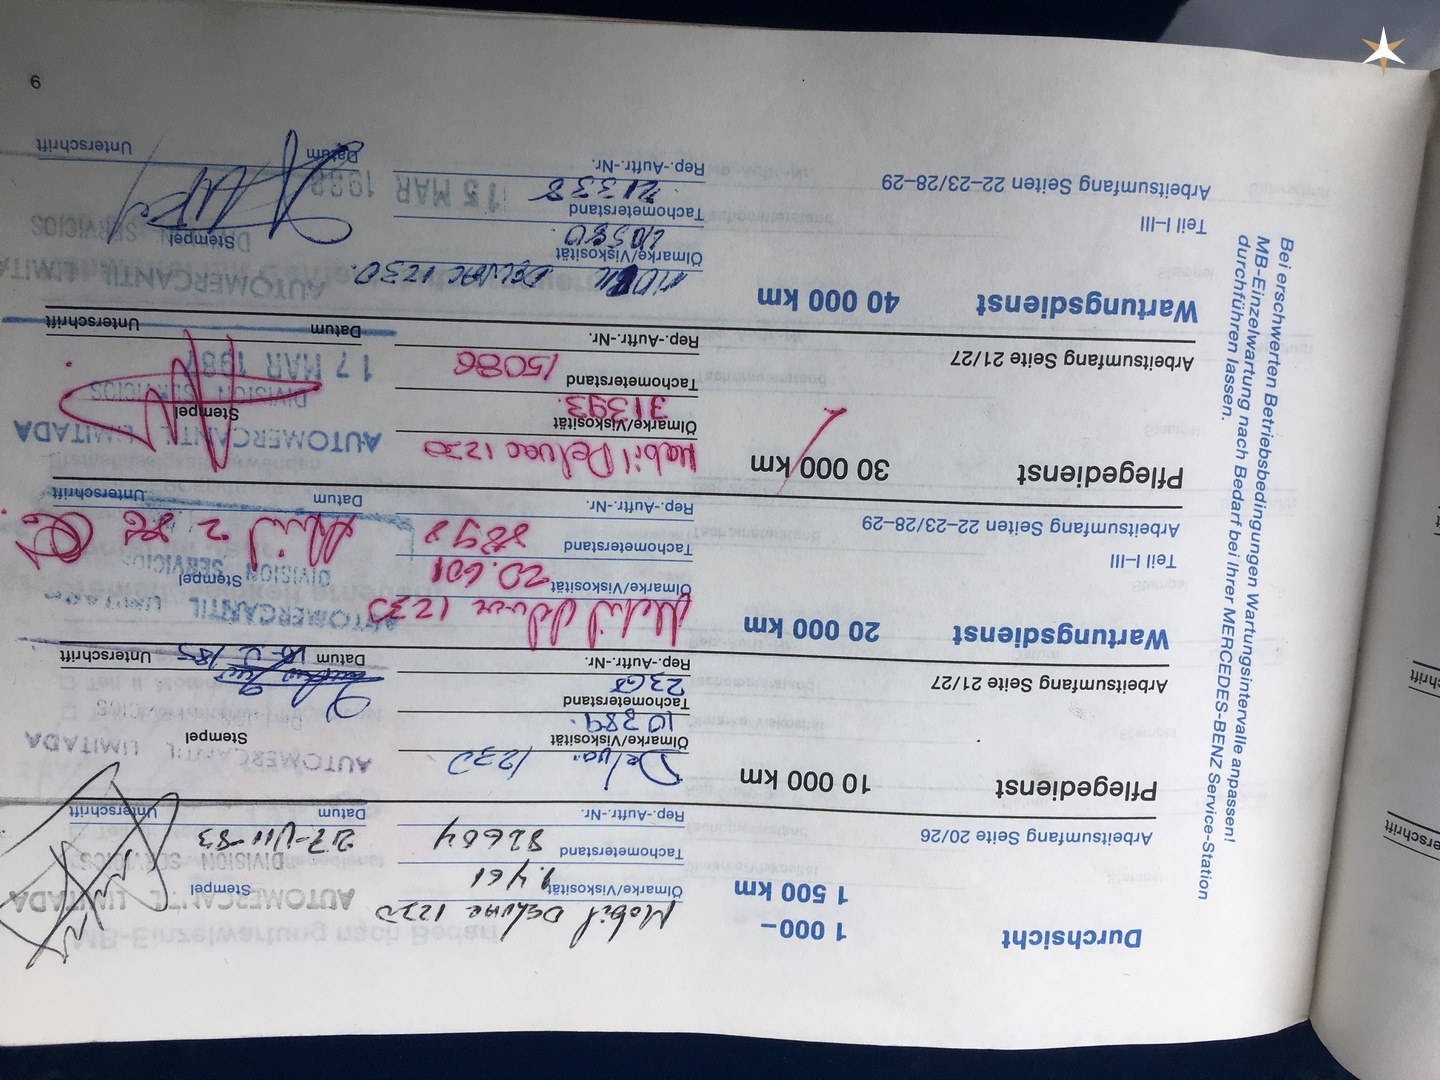 Durchsicht
1 000–
1 500 km
Arbeitsumfang Seite 20/26
Mobil Delvac 1230
Ölmarke/Viskosität
1.461
Tachometerstand
82684
Rep.-Auftr.-Nr.
AUTOMERCANTIL LIMITADA
Stempel
DIVISION SERVICIOS
27-VII-83
Datum
Unterschrift
Pflegedienst
10 000 km
Arbeitsumfang Seite 21/27
Delvac 1230
Ölmarke/Viskosität
10289.
Tachometerstand
Rep.-Auftr.-Nr.
AUTOMERCANTIL LIMITADA
Stempel
Datum
Unterschrift
Wartungsdienst
20 000 km
Teil I–III
Arbeitsumfang Seiten 22–23/28–29
Mobil Delvac 1230
Ölmarke/Viskosität
20.601
Tachometerstand
8898
Rep.-Auftr.-Nr.
AUTOMERCANTIL LIMITADA
Stempel
DIVISION SERVICIOS
Datum
Unterschrift
Pflegedienst
30 000 km
Arbeitsumfang Seite 21/27
Mobil Delvac 1230
Ölmarke/Viskosität
31393.
Tachometerstand
15086
Rep.-Auftr.-Nr.
AUTOMERCANTIL LIMITADA
Stempel
DIVISION SERVICIOS
17 MAR 1987
Datum
Unterschrift
Wartungsdienst
40 000 km
Teil I–III
Arbeitsumfang Seiten 22–23/28–29
DELVAC 1230.
Ölmarke/Viskosität
40580
Tachometerstand
21338
Rep.-Auftr.-Nr.
AUTOMERCANTIL LIMITA
Stempel
DIVISION SERVICIOS
15 MAR
Datum
Unterschrift
Bei erschwerten Betriebsbedingungen Wartungsintervalle anpassen!
MB-Einzelwartung nach Bedarf bei Ihrer MERCEDES-BENZ Service-Station
durchführen lassen.
6